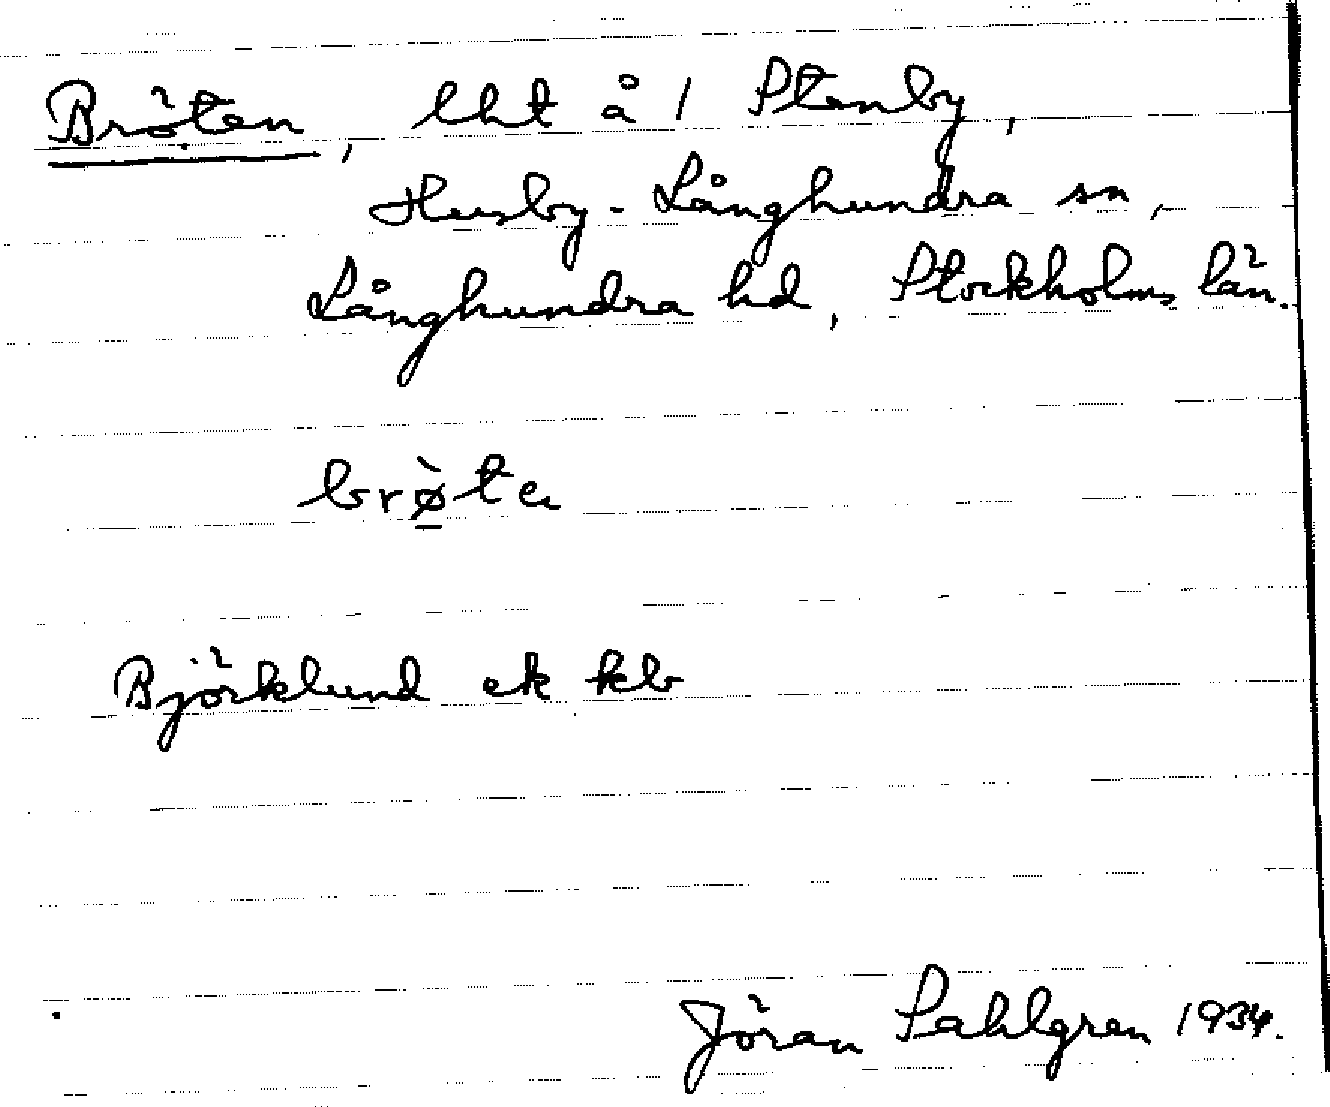 Bröten, lht å 1 Stenby,
Husby-Långhundra sn,
Långhundra hd, Stockholms län.
brø̀ta
Björklund ek kb
Jöran Sahlgren 1934.